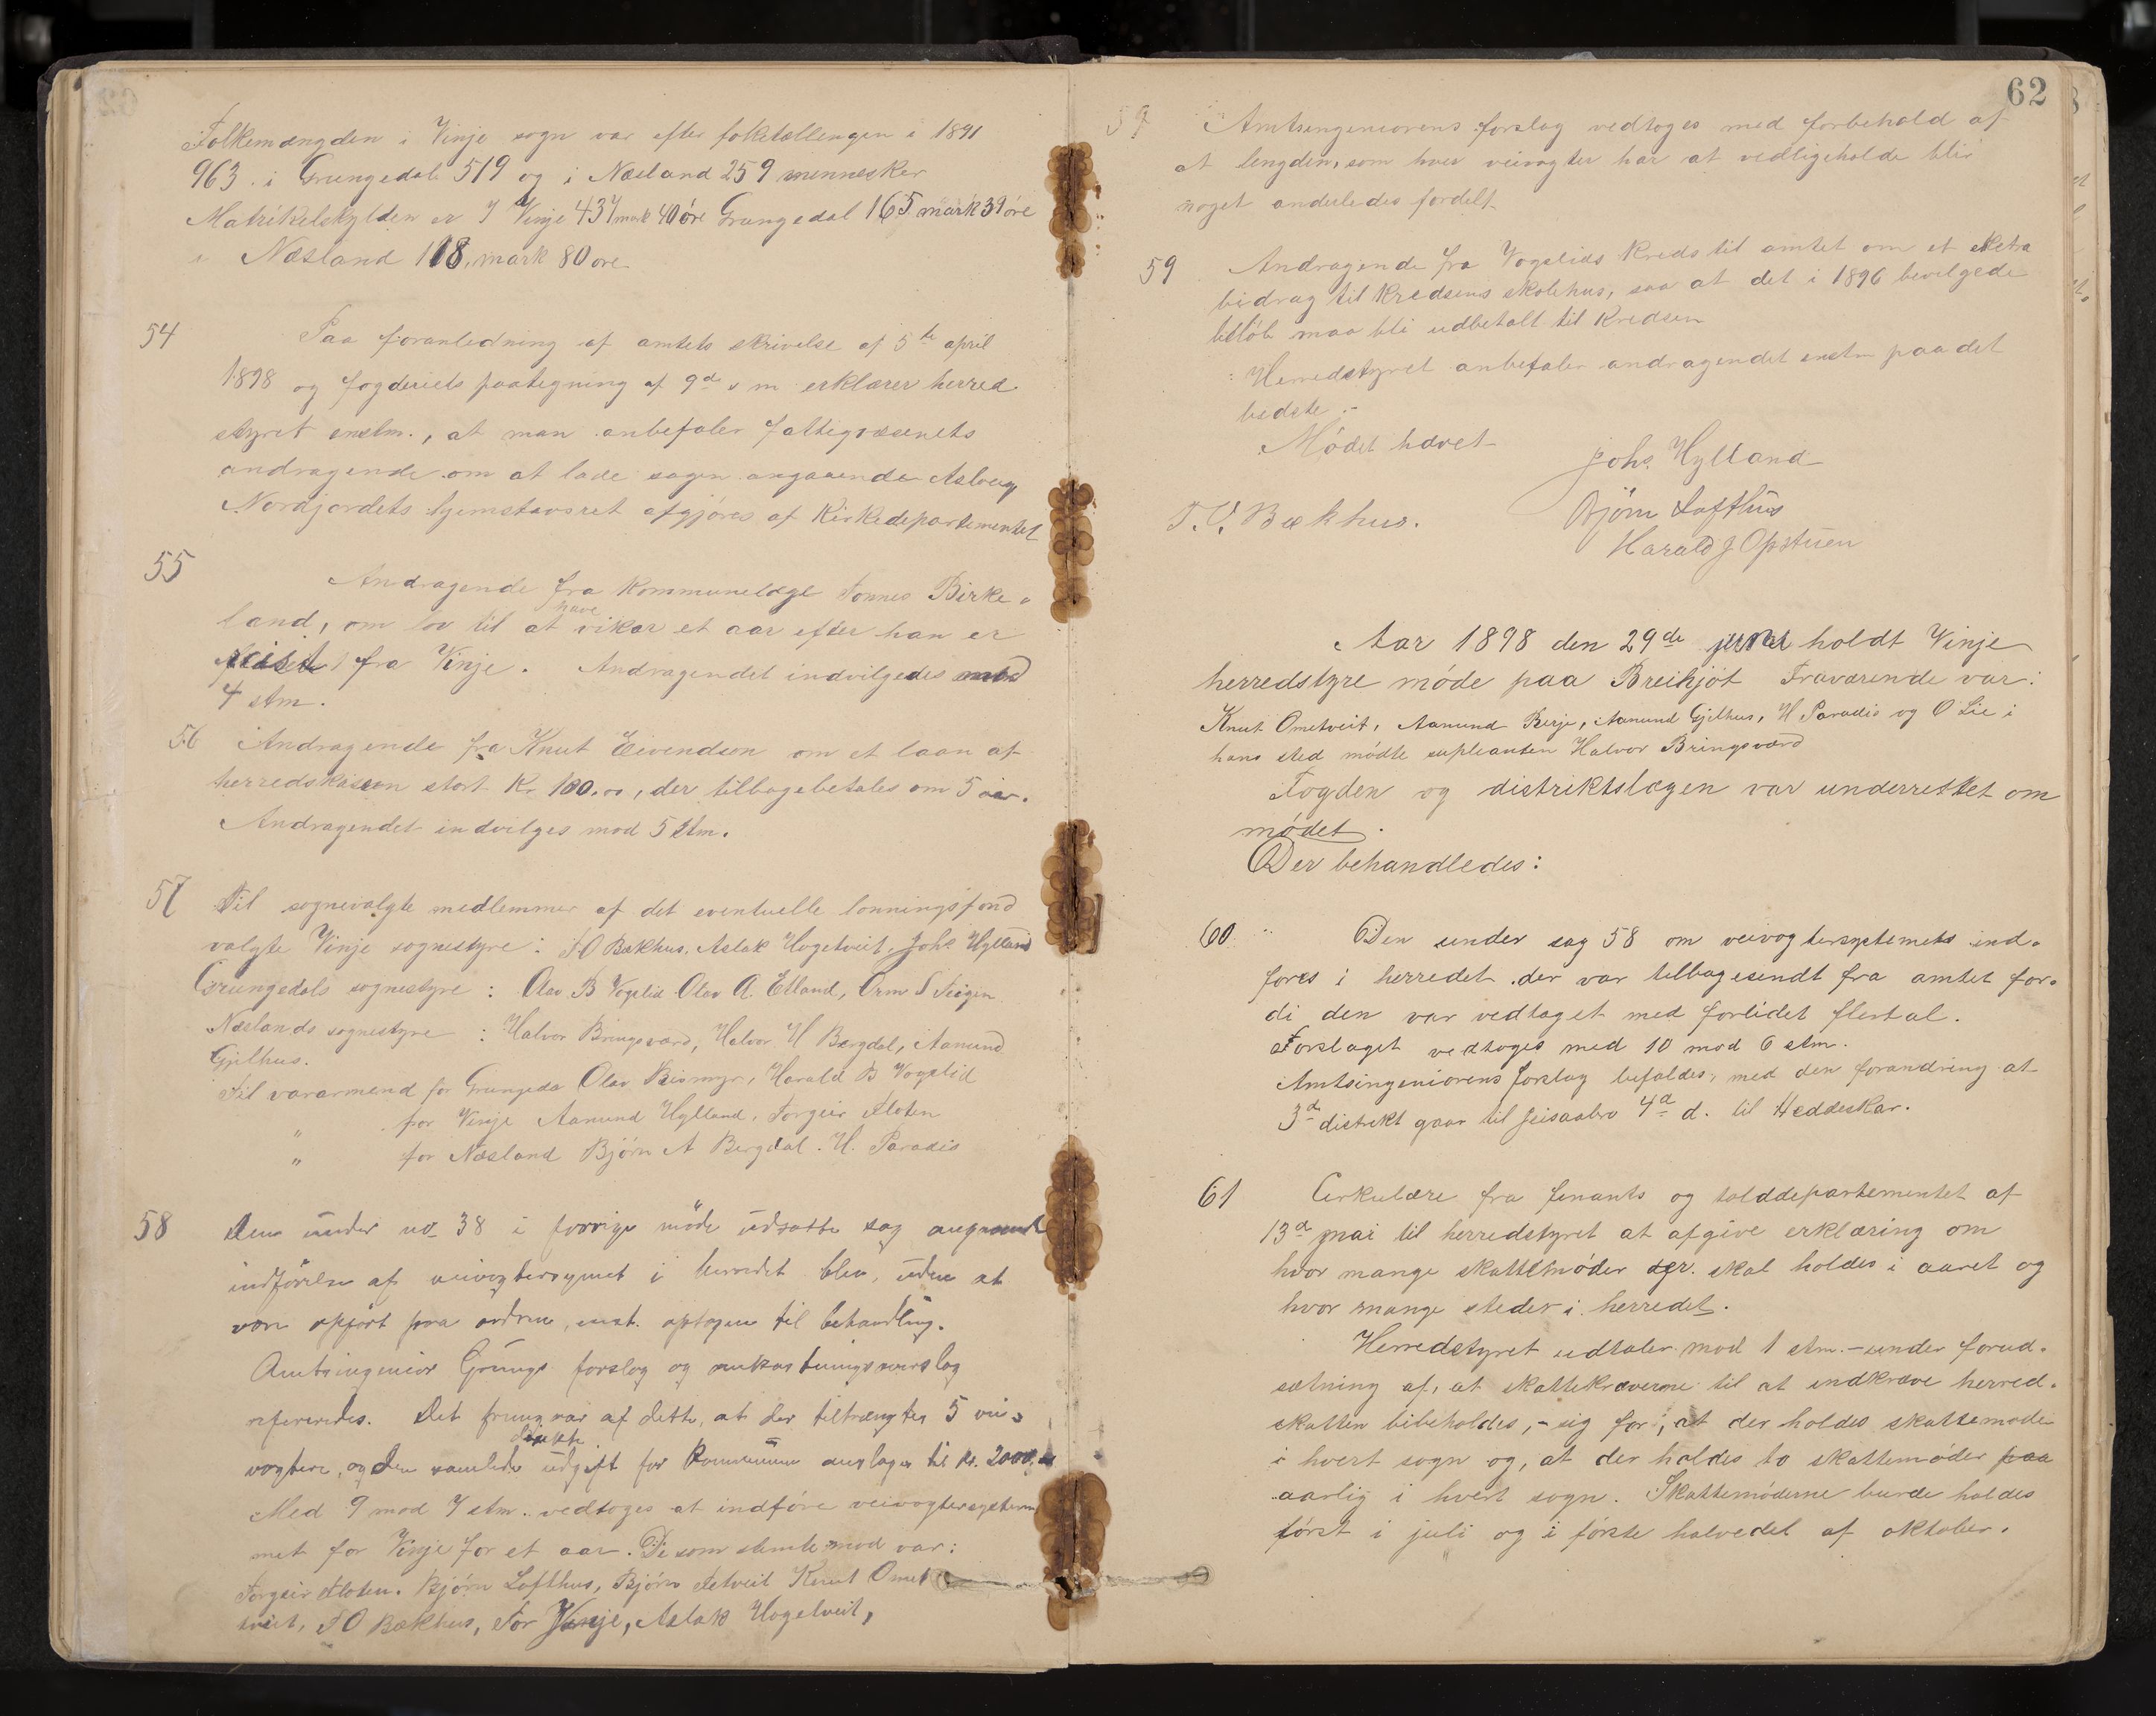 Folkemængden i Vinje sogn var efter folketællingen i 1891
963. i Grungedale 519 og i Næsland 259 mennesker
Matrikelskylden er I Vinje 437 mark 40 öre Grungedal 165 mark 39 öre
i Næsland 118, mark 80 øre
54
Paa foranledning af amtets skrivelse af 5te april
1898 og fogderiets paategning af 9de s m erklærer herred
styret enstm., at man anbefaler fattigvæsenets
andragende om at lade sagen angaaende Aslaug
Nordjordets hjemstavnsret afgjöres af Kirkedepartementet
55
Andragende fra kommunelæge Tønnes Birke-
land, om lov til at have vikar et aar efter han er
reist fra Vinje. Andragendet indvilgedes mod
4 stm.
56 Andragende fra Knut Eivendson om et laan af
herredskassen stort Kr 100.00, der tilbagebetales om 5 aar.
Andragendet indvilges mod 5 stm.
57 Til sognevalgte medlemmer af det eventuelle lønningsfond
valgte Vinje sognestyre: T O Bækhus, Aslak Hogetveit, Johs Hylland
Grungedals sognestyre: Olav B Vogslid Olav A. Edland, Orm S
Næslands sognestyre: Halvor Bringsværd, Halvor H Bergdal, Aamund
Gjelhus.
Til vararmænd for Grungeda Olav Bismyr, Harald B Vogslid
" for Vinje Aamund Hylland, Torgeir Floten
" for Næsland Bjørn A Bergdal. H. Paradis
58 Den under no 38 i forrige møde udsatte sag angaaende
indførelse af veivogtersystemet i herredet blev, uden at
være opført paa ordren, enst. optagen til behandling.
Amtsingeniør Grungs forslag og omkostningsoverslag
refereredes. Det fremgaar af dette, at der tiltrænges 5 vei-
vogtere, og den samlede direkte udgift for kommunen anslages til kr. 2000,-
Med 9 mod 7 stm. vedtoges at indföre veivogtersyste
met for Vinje for et aar. De som stemte mod var:
Torgeir Floten. Bjørn Lofthus, Bjørn Knut Omet
tveit, T O Bækhus, Tor Vinje, Aslak Hogetveit,
62
Amtsingeniørens forslag vedtoges med forbehold af
at lengden, som hver veivogter har at vedligeholde blir
noget anderledes fordelt
59 Andragende fra Vogslids Kreds til amtet om et ekstra
bidrag til Kredsens skolehus, saa at det i 1896 bevilgede
belöb maa bli udbetalt til Kredsen
Herredstyret anbefaler andragendet enstm paa det
bedste.-
Mödet hævet
Johs. Hylland
T. O. Bækhus.
Bjørn Lofthus
Harald J Opstuen
Aar 1898 den 29de juni holdt Vinje
herredstyre möde paa Breikjöt Fraværende var:
Knut Ometveit, Aamund Berje, Aamund Gjelhus, H Paradis og O Lie i
hans sted mödte supleanten Halvor Bringsværd
Fogden og distriktslægen var underrettet om
mödet.
Der behandledes:
60 Den under sag 58 om veivogtersystemets ind-
føres i herredet der var tilbagesendt fra amtet for-
di den var vedtaget med forlidet flertal.
Forslaget vedtoges med 10 mod 6 stm.
Amtsingeniørens forslag befaldes, med den forandring at
3de distrikt gaar til 4de d. til Heddeskar.
61 Cirkulære fra finants og tolddepartementet af
13de mai til herredstyret at afgive erklæring om
hvor mange skattemöder der. skal holdes i aaret og
hvor mange steder i herredet.
Herredstyret udtaler mod 1 stm. - under forud-
sætning af, at skattekræverne til at indkræve herred-
skatten bibeholdes, - sig for, at der holdes skattemöde
i hvert sogn og, at der holdes to skattemøder paa
aarlig i hvert sogn. Skattemöderne burde holdes
först i juli og i förste halvedel af oktober.